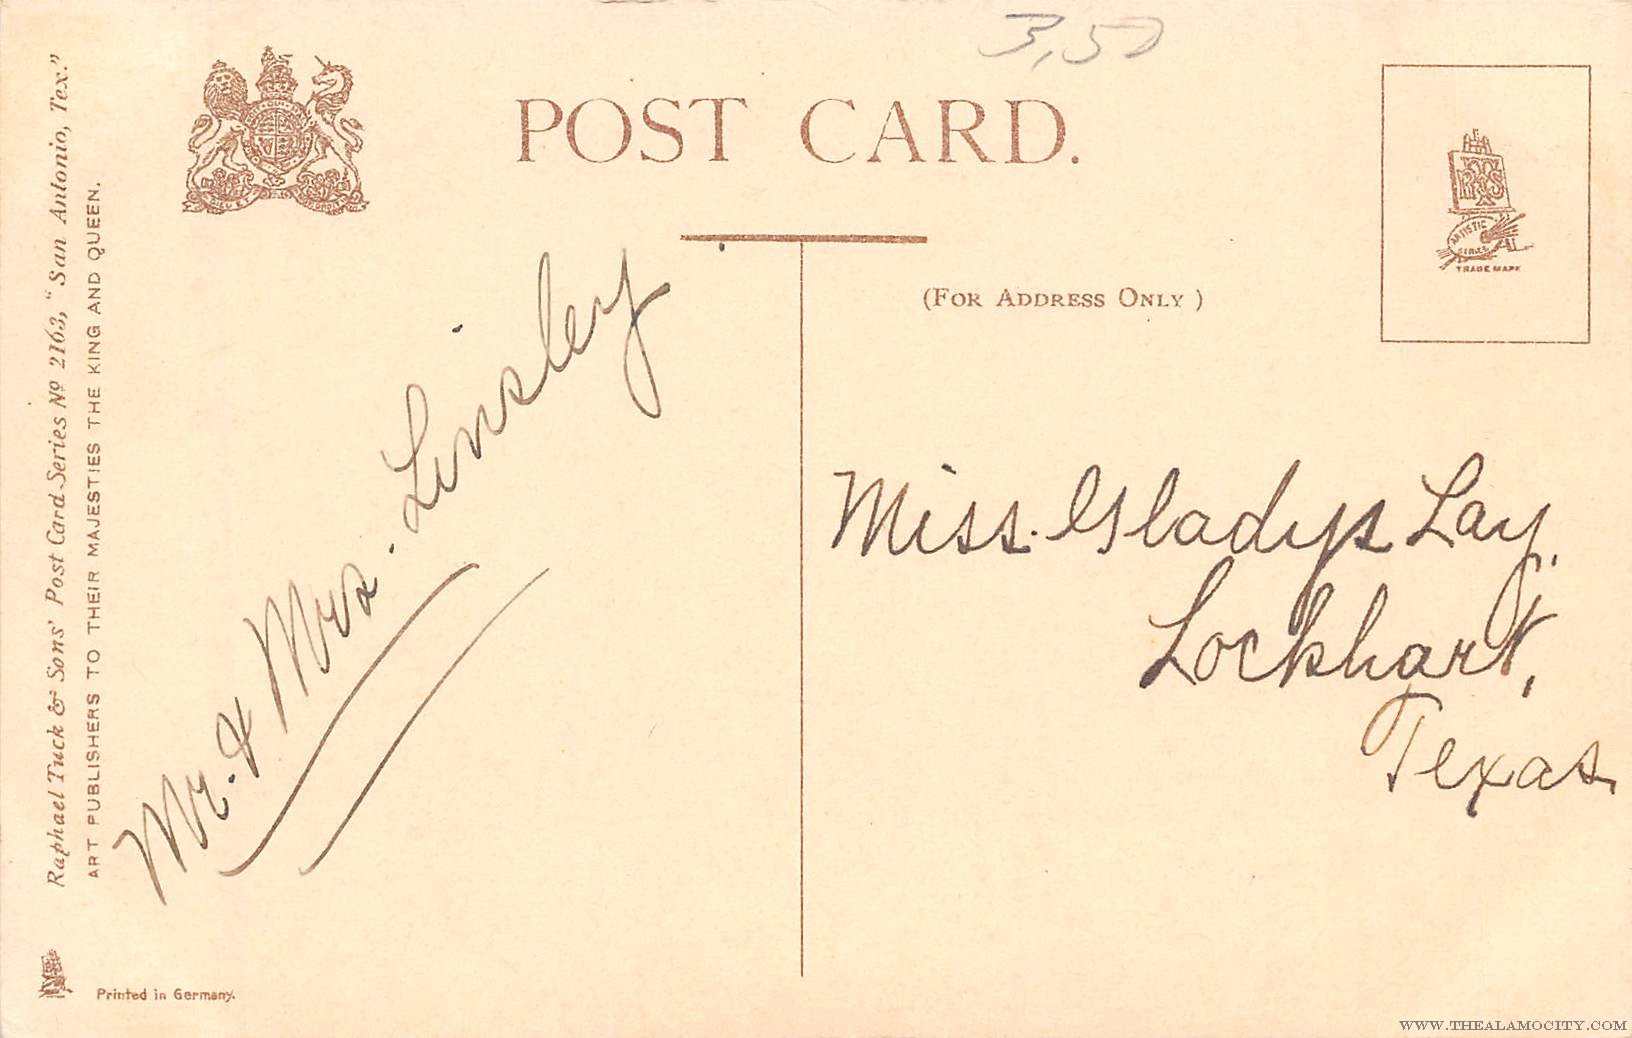 3,50
POST CARD.
(FOR ADDRESS ONLY)
PTS
ARTISTIC
SERIES
TRADE MARK
DIEU ET
Raphael Tuck & Sons' Post Card Series No 2163, "San Antonio, Tex."
ART PUBLISHERS TO THEIR MAJESTIES THE KING AND QUEEN.
Mr. & Mrs. Linsley
Miss. Gladys Lay.
Lockhart,
Texas
Printed in Germany.
WWW.THEALAMOCITY.COM